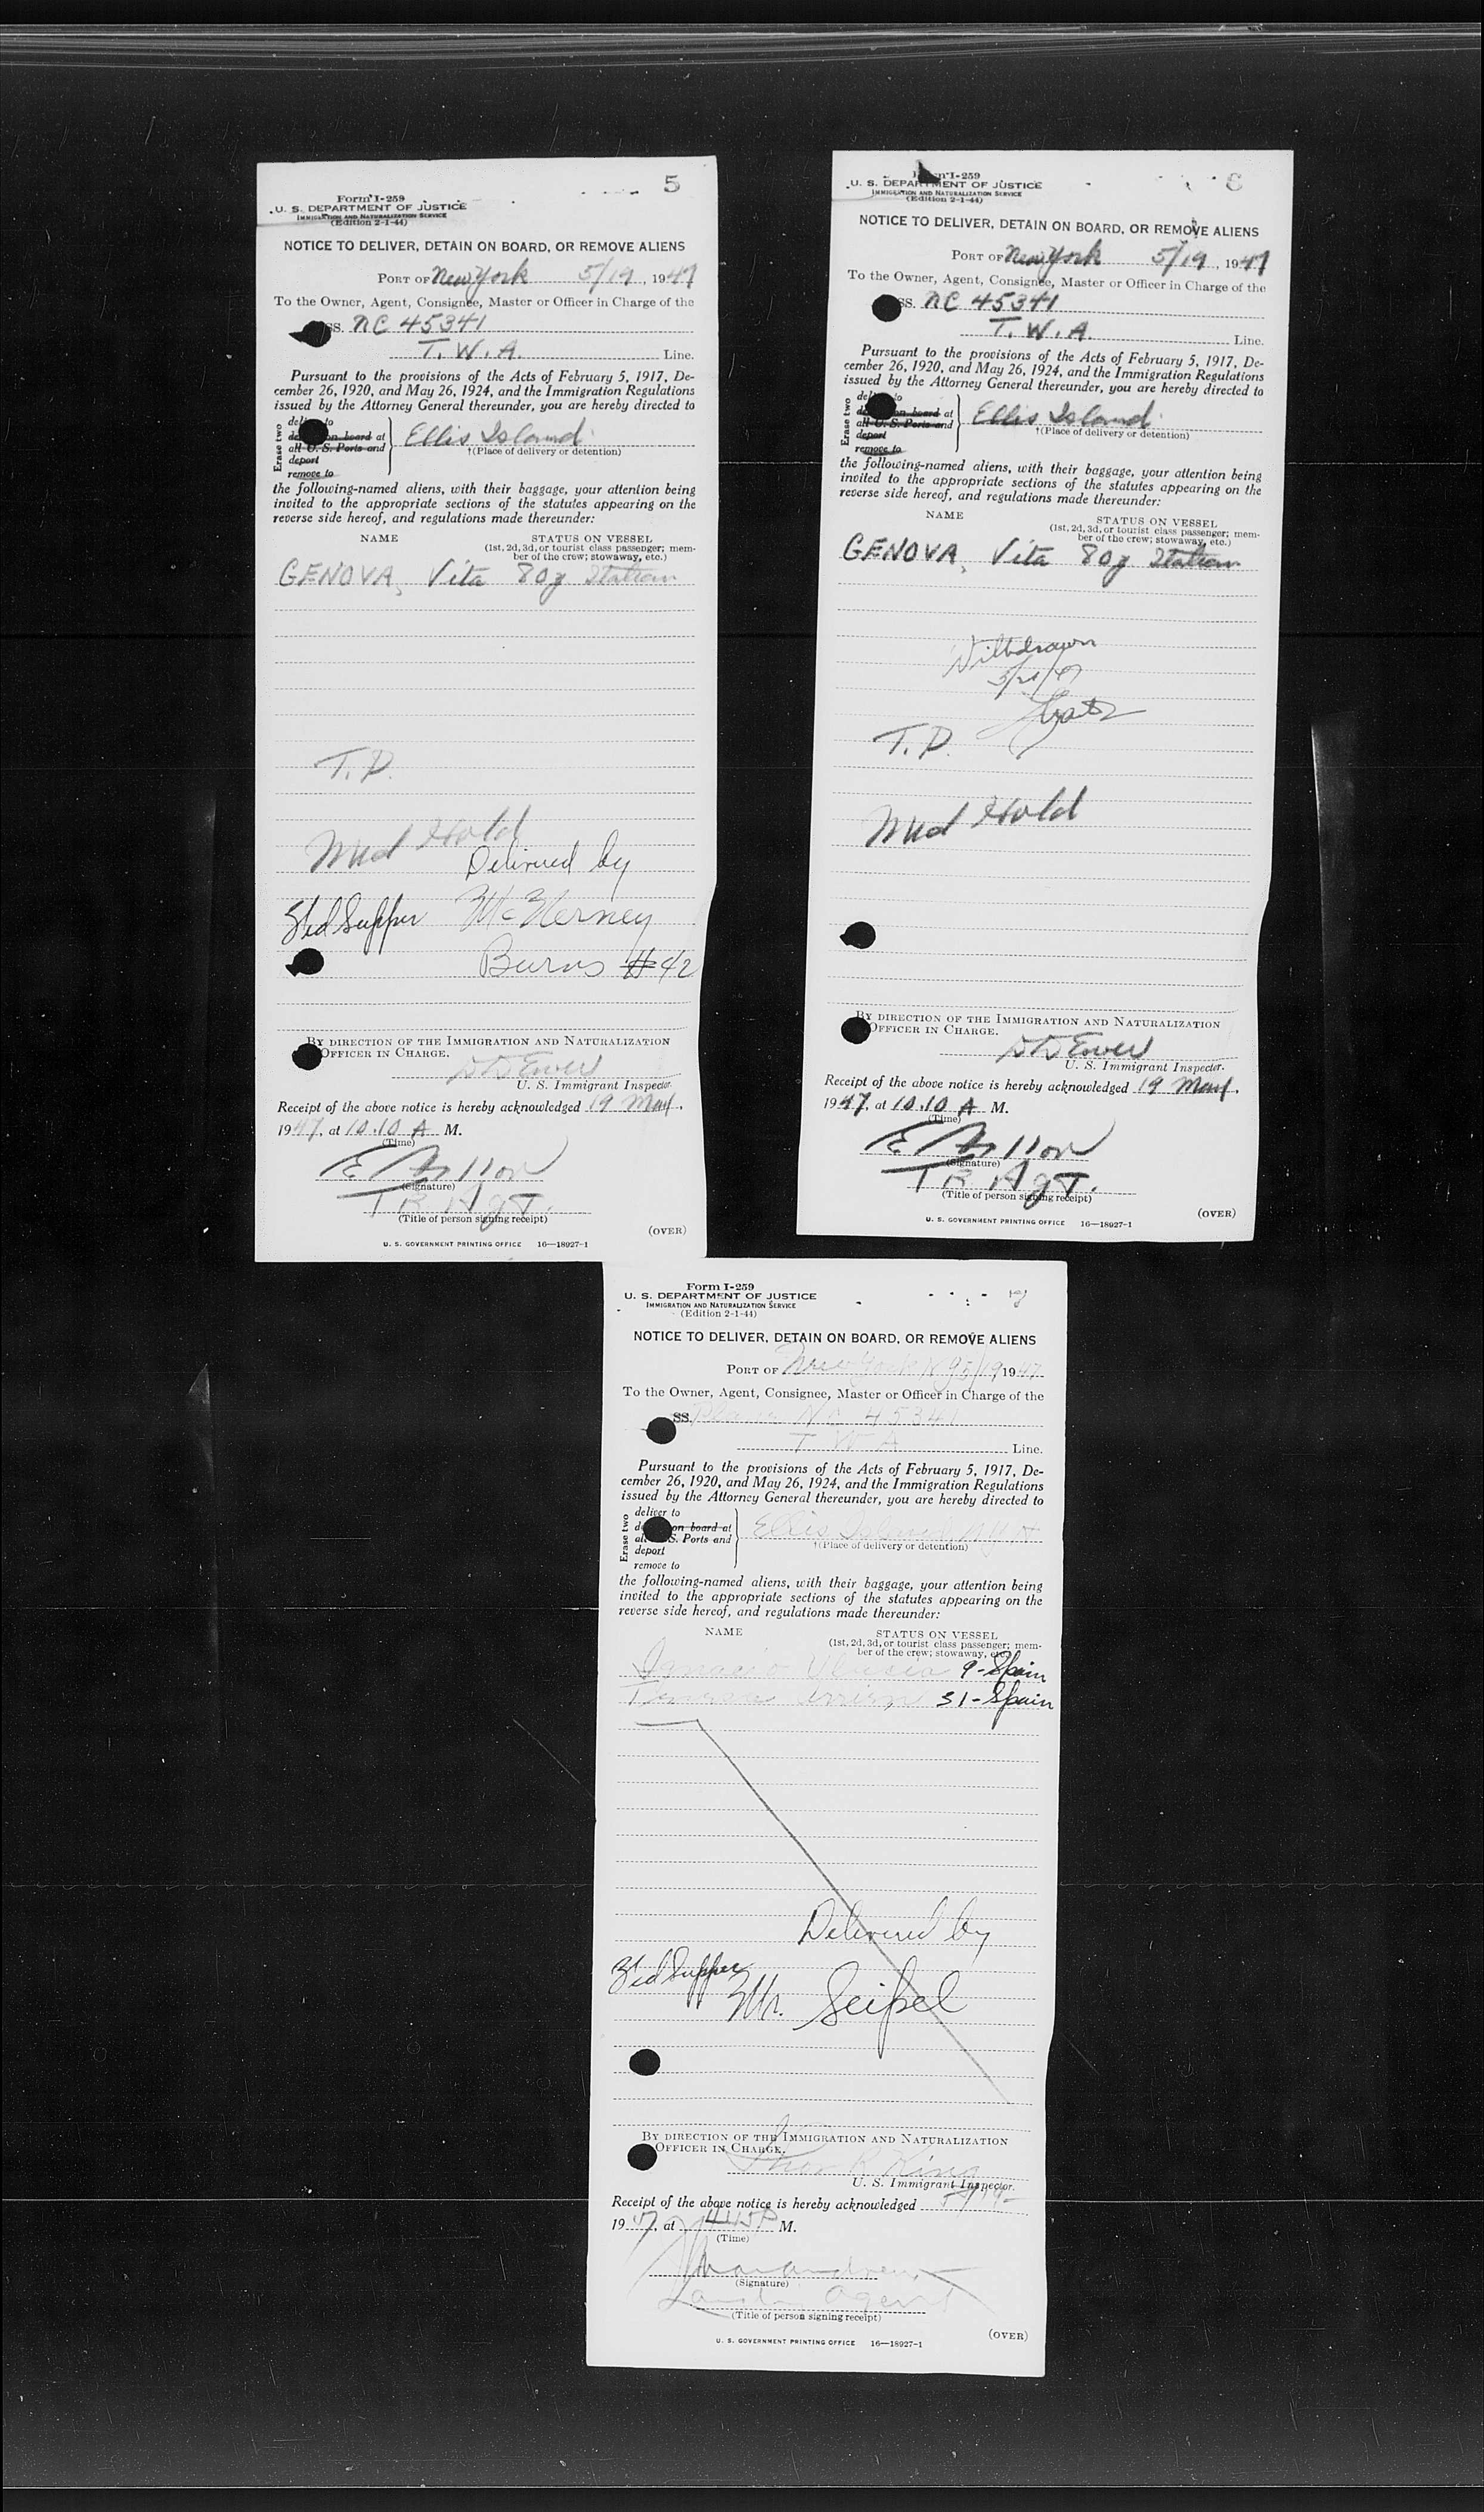 5
Form I-259
U. S. DEPARTMENT OF JUSTICE
IMMIGRATION AND NATURALIZATION SERVICE
(Edition 2-1-44)
NOTICE TO DELIVER, DETAIN ON BOARD, OR REMOVE ALIENS
PORT OF New York 5/19, 1947
To the Owner, Agent, Consignee, Master or Officer in Charge of the
SS. NC 45341
T. W. A. Line.
Pursuant to the provisions of the Acts of February 5, 1917, De-
cember 26, 1920, and May 26, 1924, and the Immigration Regulations
issued by the Attorney General thereunder, you are hereby directed to
Erase two
deliver to
on board at
all U. S. Ports and
deport
remove to
Ellis Island
†(Place of delivery or detention)
the following-named aliens, with their baggage, your attention being
invited to the appropriate sections of the statutes appearing on the
reverse side hereof, and regulations made thereunder:
NAME STATUS ON VESSEL
(1st, 2d, 3d, or tourist class passenger; mem-
ber of the crew; stowaway, etc.)
GENOVA, Vita 80y Italian
T. D.
Med Hold
Delivered by
Supper McNerney
Burns #42
BY DIRECTION OF THE IMMIGRATION AND NATURALIZATION
OFFICER IN CHARGE.
U. S. Immigrant Inspector.
Receipt of the above notice is hereby acknowledged 19 May,
1947, at 10.10 A M.
(Time)
(Signature)
TR AgT.
(Title of person signing receipt)
(OVER)
U. S. GOVERNMENT PRINTING OFFICE 16—18927-1
6
Form I-259
U. S. DEPARTMENT OF JUSTICE
IMMIGRATION AND NATURALIZATION SERVICE
(Edition 2-1-44)
NOTICE TO DELIVER, DETAIN ON BOARD, OR REMOVE ALIENS
PORT OF New York 5/19, 1947
To the Owner, Agent, Consignee, Master or Officer in Charge of the
SS. NC 45341
T. W. A. Line.
Pursuant to the provisions of the Acts of February 5, 1917, De-
cember 26, 1920, and May 26, 1924, and the Immigration Regulations
issued by the Attorney General thereunder, you are hereby directed to
Erase two
deliver to
on board at
all U. S. Ports and
deport
remove to
Ellis Island
†(Place of delivery or detention)
the following-named aliens, with their baggage, your attention being
invited to the appropriate sections of the statutes appearing on the
reverse side hereof, and regulations made thereunder:
NAME STATUS ON VESSEL
(1st, 2d, 3d, or tourist class passenger; mem-
ber of the crew; stowaway, etc.)
GENOVA, Vita 80y Italian
Withdrawn
T. D.
Med Hold
BY DIRECTION OF THE IMMIGRATION AND NATURALIZATION
OFFICER IN CHARGE.
U. S. Immigrant Inspector.
Receipt of the above notice is hereby acknowledged 19 May,
1947, at 10.10 A M.
(Time)
(Signature)
TR AgT.
(Title of person signing receipt)
(OVER)
U. S. GOVERNMENT PRINTING OFFICE 16—18927-1
7
Form I-259
U. S. DEPARTMENT OF JUSTICE
IMMIGRATION AND NATURALIZATION SERVICE
(Edition 2-1-44)
NOTICE TO DELIVER, DETAIN ON BOARD, OR REMOVE ALIENS
PORT OF New York NY 5/19, 1947
To the Owner, Agent, Consignee, Master or Officer in Charge of the
SS. Plane NC 45341
T W A Line.
Pursuant to the provisions of the Acts of February 5, 1917, De-
cember 26, 1920, and May 26, 1924, and the Immigration Regulations
issued by the Attorney General thereunder, you are hereby directed to
Erase two
deliver to
on board at
all U. S. Ports and
deport
remove to
Ellis Island
†(Place of delivery or detention)
the following-named aliens, with their baggage, your attention being
invited to the appropriate sections of the statutes appearing on the
reverse side hereof, and regulations made thereunder:
NAME STATUS ON VESSEL
(1st, 2d, 3d, or tourist class passenger; mem-
ber of the crew; stowaway, etc.)
Ignacio 9-Spain
31-Spain
Delivered by
Supper Mr. Seipel
BY DIRECTION OF THE IMMIGRATION AND NATURALIZATION
OFFICER IN CHARGE.
R King
U. S. Immigrant Inspector.
Receipt of the above notice is hereby acknowledged 5/19
1947, at 445P M.
(Time)
(Signature)
Agent
(Title of person signing receipt)
(OVER)
U. S. GOVERNMENT PRINTING OFFICE 16—18927-1